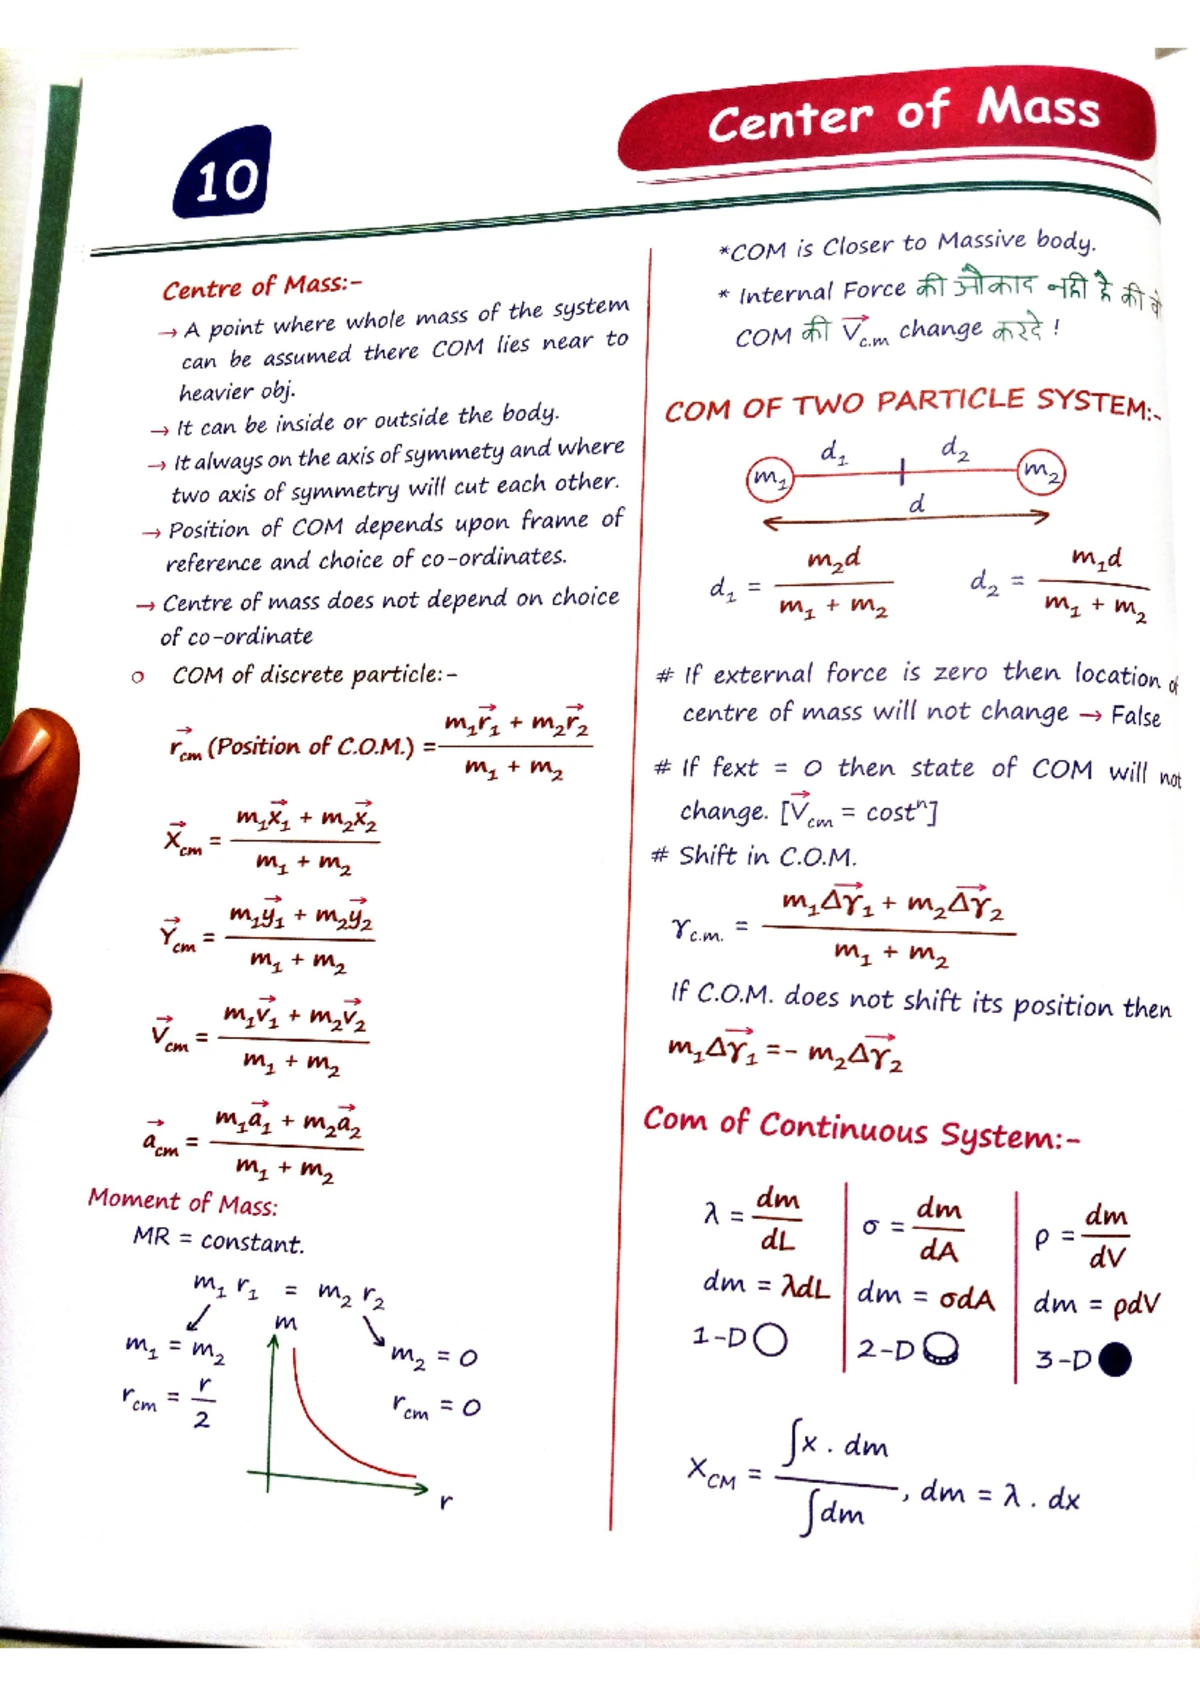 10
Center of Mass
Centre of Mass:-
→ A point where whole mass of the system
can be assumed there COM lies near to
heavier obj.
→ It can be inside or outside the body.
→ It always on the axis of symmety and where
two axis of symmetry will cut each other.
→ Position of COM depends upon frame of
reference and choice of co-ordinates.
→ Centre of mass does not depend on choice
of co-ordinate
○ COM of discrete particle:-
r⃗cm (Position of C.O.M.) = (m₁r⃗₁ + m₂r⃗₂) / (m₁ + m₂)
X⃗cm = (m₁x⃗₁ + m₂x⃗₂) / (m₁ + m₂)
Y⃗cm = (m₁y⃗₁ + m₂y⃗₂) / (m₁ + m₂)
V⃗cm = (m₁v⃗₁ + m₂v⃗₂) / (m₁ + m₂)
a⃗cm = (m₁a⃗₁ + m₂a⃗₂) / (m₁ + m₂)
Moment of Mass:
MR = constant.
m₁ r₁ = m₂ r₂
m₁ = m₂
rcm = r / 2
m
r
m₂ = 0
rcm = 0
*COM is Closer to Massive body.
* Internal Force की औकाद नही है की वो
COM की V⃗c.m change करदे !
COM OF TWO PARTICLE SYSTEM:-
d₁ d₂
m₁ m₂
d
d₁ = m₂d / (m₁ + m₂) d₂ = m₁d / (m₁ + m₂)
# If external force is zero then location of
centre of mass will not change → False
# If fext = 0 then state of COM will not
change. [V⃗cm = costⁿ]
# Shift in C.O.M.
rc.m. = (m₁Δr⃗₁ + m₂Δr⃗₂) / (m₁ + m₂)
If C.O.M. does not shift its position then
m₁Δr⃗₁ = - m₂Δr⃗₂
Com of Continuous System:-
λ = dm / dL σ = dm / dA ρ = dm / dV
dm = λdL dm = σdA dm = ρdV
1-D 2-D 3-D
XCM = ∫x . dm / ∫dm , dm = λ . dx